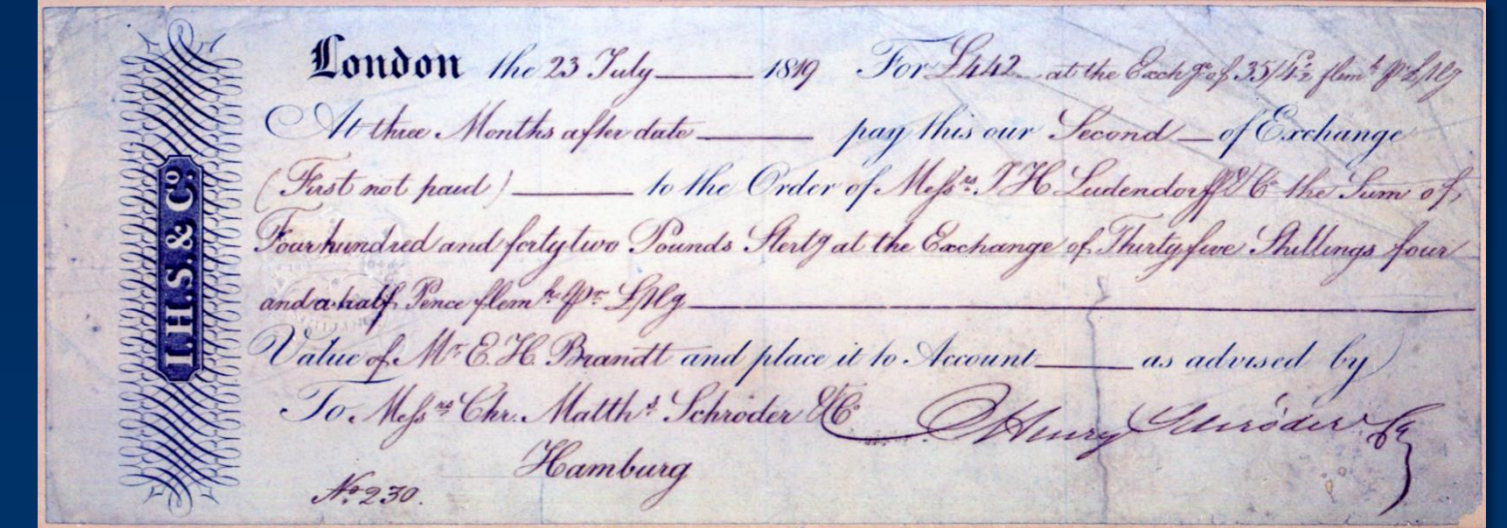 I.H.S. & Co.
London the 23 July 1819 For £442 at the Exchge of 35/4½ flemh pr £stlg
At three Months after date pay this our Second of Exchange
(First not paid) to the Order of Messrs. J H Ludendorff & Co the Sum of
Four hundred and forty two Pounds Sterlg at the Exchange of Thirty five Shillings four
and a half Pence flemh pr £stlg
Value of Mr E. H. Brandt and place it to Account as advised by
To Messrs Chr. Matths Schröder & Co JHenry Schröder & Co
Hamburg
No 230.